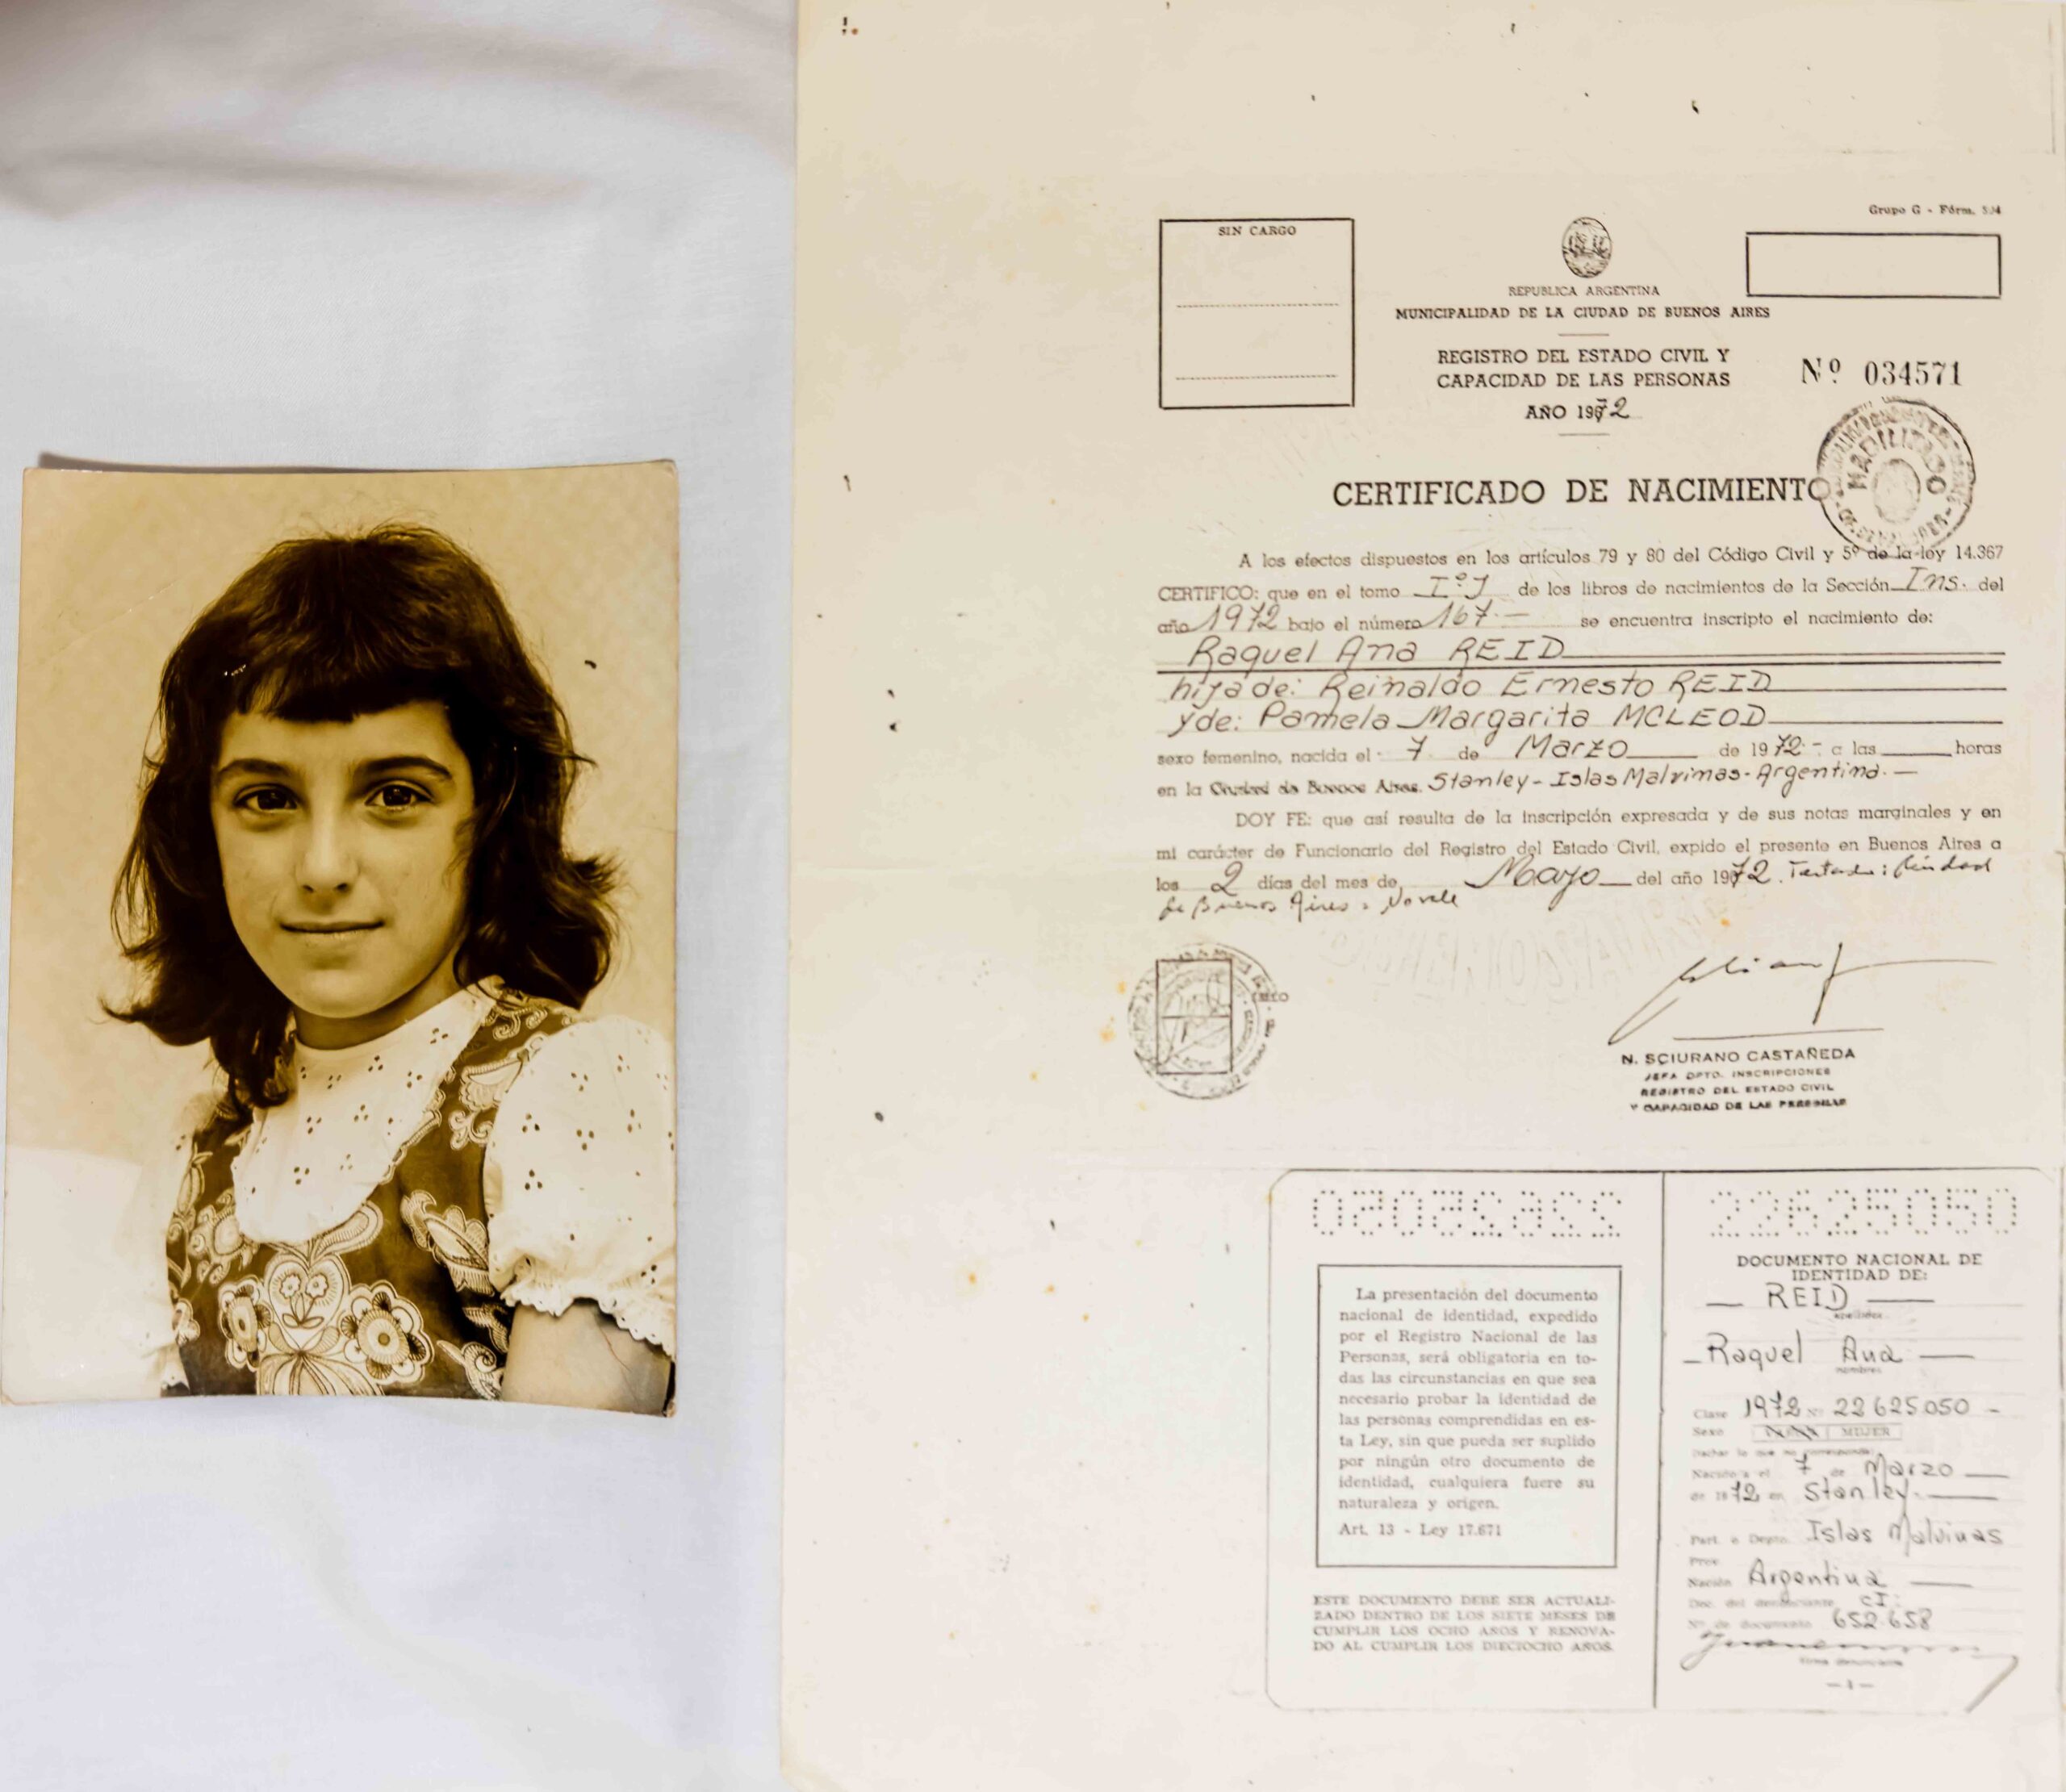 Grupo G - Fórm. 504
SIN CARGO
REPUBLICA ARGENTINA
MUNICIPALIDAD DE LA CIUDAD DE BUENOS AIRES
REGISTRO DEL ESTADO CIVIL Y
CAPACIDAD DE LAS PERSONAS
Nº 034571
AÑO 1972
CERTIFICADO DE NACIMIENTO
HABILITADO
A los efectos dispuestos en los artículos 79 y 80 del Código Civil y 5º de la ley 14.367
CERTIFICO: que en el tomo Iº J de los libros de nacimientos de la Sección Ins. del
año 1972 bajo el número 167.- se encuentra inscripto el nacimiento de:
Raquel Ana REID
hija de: Reinaldo Ernesto REID
y de: Pamela Margarita MCLEOD
sexo femenino, nacida el 7 de Marzo de 1972.- a las horas
en la Ciudad de Buenos Aires. Stanley - Islas Malvinas - Argentina.-
DOY FE: que así resulta de la inscripción expresada y de sus notas marginales y en
mi carácter de Funcionario del Registro del Estado Civil, expido el presente en Buenos Aires a
los 2 días del mes de Mayo del año 1972. Testado: Ciudad
de Buenos Aires:
N. SCIURANO CASTAÑEDA
JEFA DPTO. INSCRIPCIONES
REGISTRO DEL ESTADO CIVIL
Y CAPACIDAD DE LAS PERSONAS
22625050
La presentación del documento
nacional de identidad, expedido
por el Registro Nacional de las
Personas, será obligatoria en to-
das las circunstancias en que sea
necesario probar la identidad de
las personas comprendidas en es-
ta Ley, sin que pueda ser suplido
por ningún otro documento de
identidad, cualquiera fuere su
naturaleza y origen.
Art. 13 - Ley 17.671
ESTE DOCUMENTO DEBE SER ACTUALI-
ZADO DENTRO DE LOS SIETE MESES DE
CUMPLIR LOS OCHO AÑOS Y RENOVA-
DO AL CUMPLIR LOS DIECIOCHO AÑOS.
22625050
DOCUMENTO NACIONAL DE
IDENTIDAD DE:
REID
apellidos
Raquel Ana
nombres
Clase 1972 Nº 22625.050 -
Sexo MUJER
(tachar lo que no corresponda)
Nacido a el 7 de Marzo
de 1972 en Stanley.-
Part. o Depto. Islas Malvinas
Prov.
Nación Argentina
Doc. del denunciante CI:
Nº de documento 652.658
firma denunciante
- 1 -